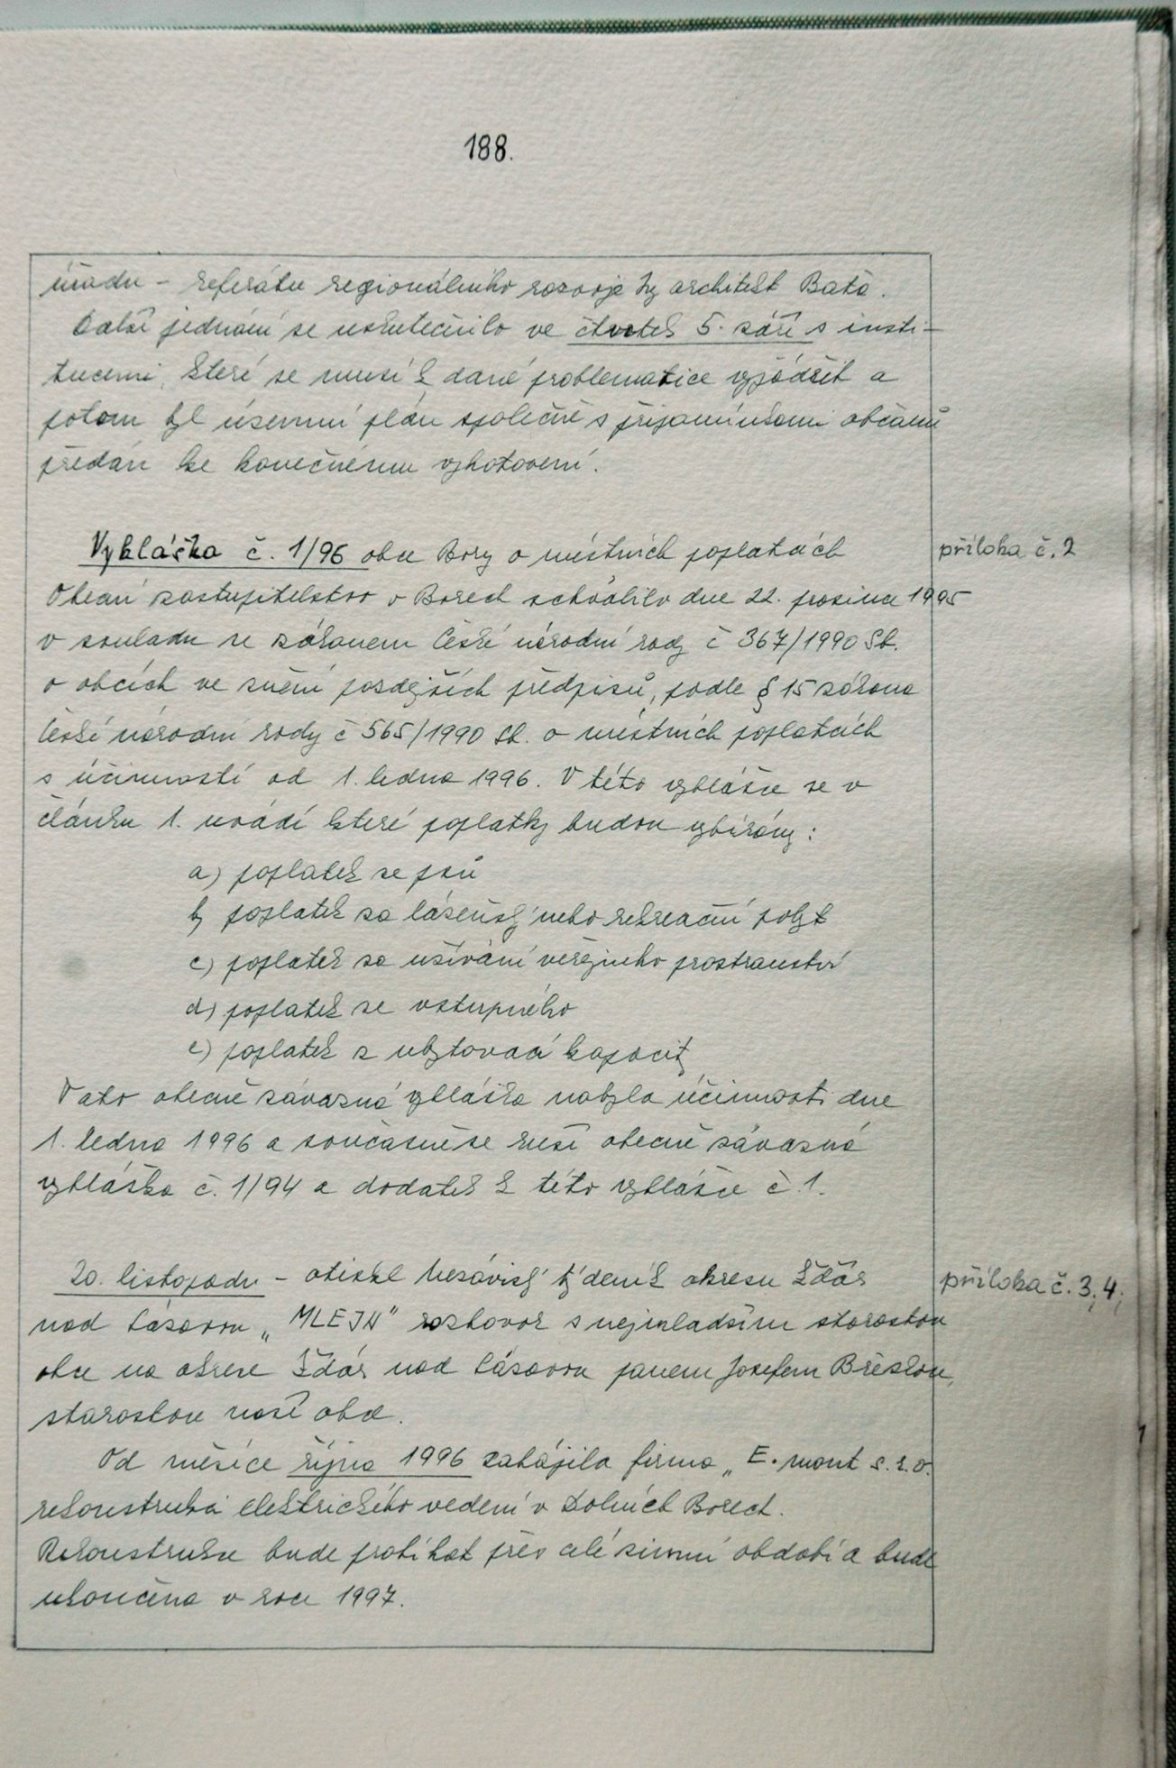 188.
úřadu - referátu regionálního rozvoje Ing architekt Bata.
Další jednání se uskutečnilo ve čtvrtek 5. září s insti-
tucemi, které se musí k dané problematice vyjádřit a
potom byl územní plán společně s připomínkami občanů
předán ke konečnému vyhotovení.
Vyhláška č. 1/96 obce Bory o místních poplatcích
příloha č. 2
Obecní zastupitelstvo v Borech schválilo dne 22. prosince 1995
v souladu se zákonem České národní rady č 367/1990 Sb.
o obcích ve znění pozdějších předpisů, podle § 15 zákona
České národní rady č 565/1990 Sb. o místních poplatcích
s účinností od 1. ledna 1996. V této vyhlášce se v
článku 1. uvádí které poplatky budou vybírány:
a) poplatek ze psů
b) poplatek za lázeňský nebo rekreační pobyt
c) poplatek za užívání veřejného prostranství
d) poplatek ze vstupného
e) poplatek z ubytovací kapacity
Tato obecně závazná vyhláška nabyla účinnosti dne
1. ledna 1996 a současně se ruší obecně závazná
vyhláška č. 1/94 a dodatek k této vyhlášce č. 1.
20. listopadu - otiskl Nezávislý týdeník okresu Žďár
příloha č. 3, 4,
nad Sázavou "MLEJN" rozhovor s nejmladším starostou
obce na okrese Žďár nad Sázavou panem Josefem Břeskou,
starostou naší obce.
Od měsíce října 1996 zahájila firma "E. mont s.r.o.
rekonstrukci elektrického vedení v Dolních Borech.
Rekonstrukce bude probíhat přes celé zimní období a bude
ukončena v roce 1997.